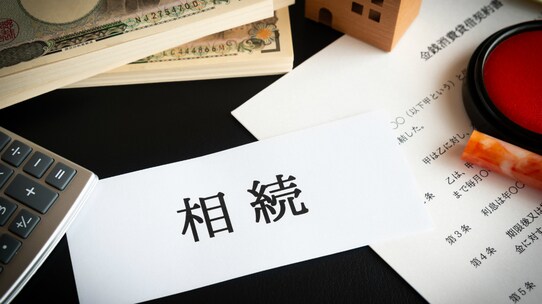 相続
金銭消費貸借契約書
〇〇（以下甲という）と
結した。
甲は乙に対し、
乙は、甲
まで毎月〇〇
利息は年〇〇
第3条
期限後又は
第4条
金に対す
第5条
NJ275470J